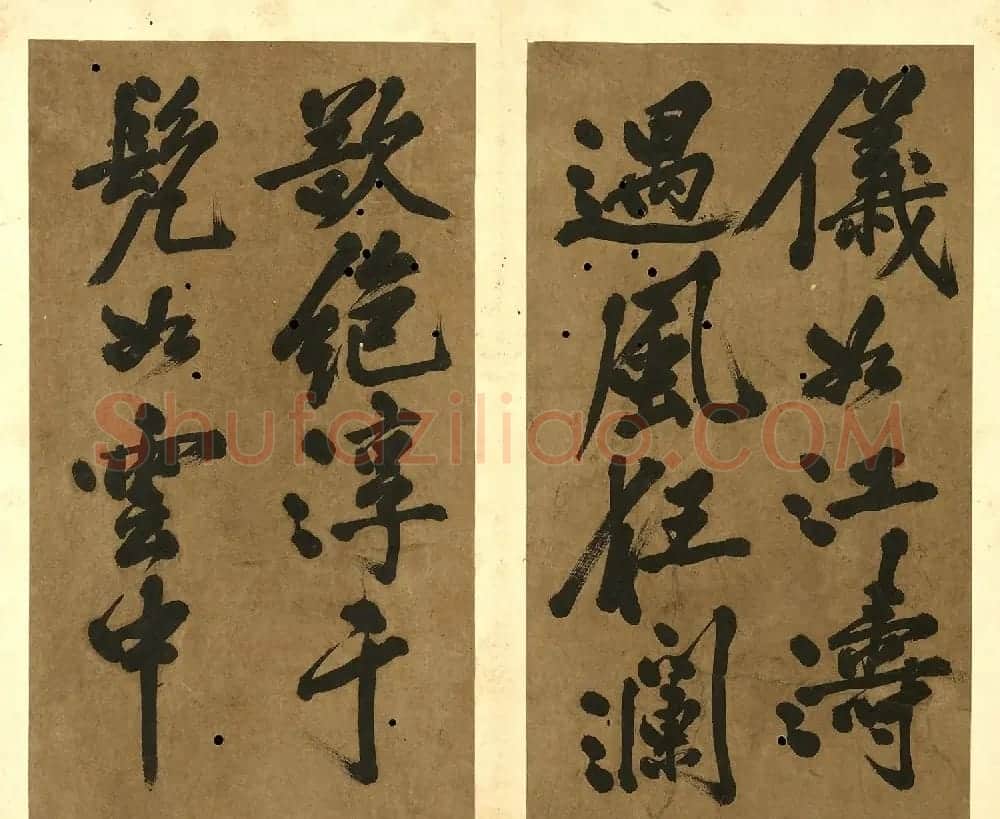 儀如江濤
遇風狂瀾
絶淳于
髡如雲中
Shufaziliao.COM